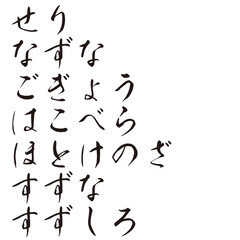 せり
なずな
ごぎょう
はこべら
ほとけのざ
すずな
すずしろ